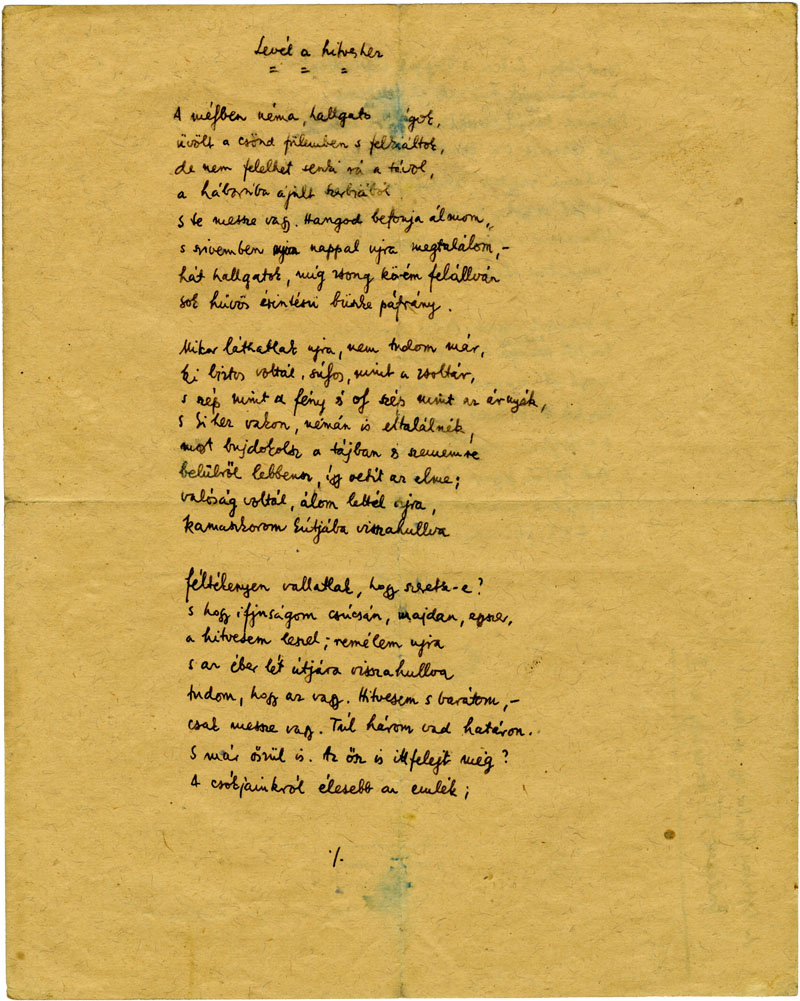 Levél a hitveshez
A mélyben néma, hallgato
üvölt a csönd fülemben s felkiáltok,
de nem felelhet senki rá a távol,
a háboruba ájult Szerbiából
s te messze vagy. Hangod befonja álmom,,
s szivemben ujra nappal ujra megtalálom,–
hát hallgatok, míg zsong körém felállván
sok hüvös érintésü büszke páfrány.
Mikor láthatlak ujra, nem tudom már,
ki biztos voltál, súlyos, mint a zsoltár,
s szép mint a fény s oly szép mint az árnyék,
s kihez vakon, némán is eltalálnék,
most bujdokolsz a tájban s szememre
belülről lebbensz, így vetít az elme;
valóság voltál, álom lettél ujra,
kamaszkorom kútjába visszahullva
féltékenyen vallatlak, hogy szeretsz-e?
s hogy ifjuságom csúcsán, majdan, egyszer,
a hitvesem leszel; remélem ujra
s az éber lét útjára visszahullva
tudom, hogy az vagy. Hitvesem s barátom,–
csak messze vagy. Túl három vad határon.
S már őszül is. Az ősz is ittfelejt még?
A csókjainkról élesebb az emlék;
./.